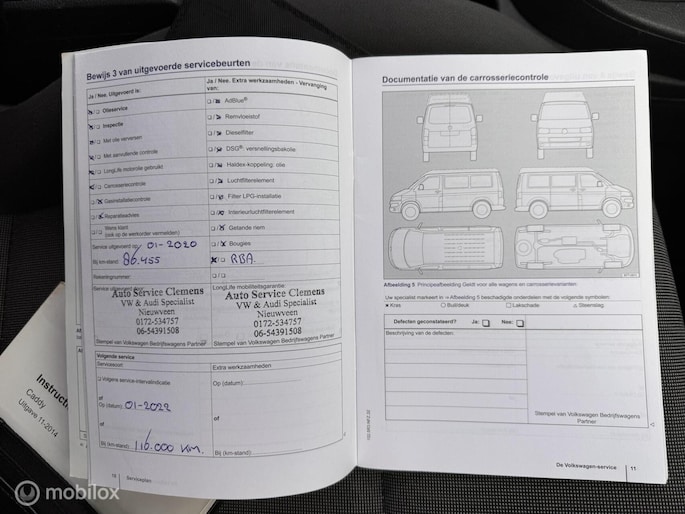 Bewijs 3 van uitgevoerde servicebeurten
Ja / Nee. Uitgevoerd is:
Ja / Nee. Extra werkzaamheden - Vervanging van:
Olieservice
AdBlue®
Inspectie
Remvloeistof
Met olie verversen
Dieselfilter
Met aanvullende controle
DSG®. versnellingsbakolie
LongLife motorolie gebruikt
Haldex-koppeling: olie
Carrosseriecontrole
Luchtfilterelement
Gasinstallatiecontrole
Filter LPG-installatie
Reparatieadvies
Interieurluchtfilterelement
Wens klant
(ook op de werkorder vermelden)
Getande riem
Service uitgevoerd op: 01-2020
Bougies
Bij km-stand: 86.455
RBA
Rekeningnummer:
Service uitgevoerd door:
LongLife mobiliteitsgarantie
Auto Service Clemens
VW & Audi Specialist
Nieuwveen
0172-534757
06-54391508
Stempel van Volkswagen Bedrijfswagens Partner
Auto Service Clemens
VW & Audi Specialist
Nieuwveen
0172-534757
06-54391508
Stempel van Volkswagen Bedrijfswagens Partner
Volgende service
Servicesoort:
Extra werkzaamheden
Volgens service-intervalindicatie
Op (datum):
of
Op (datum): 01-2022
of
of
Bij (km-stand): 116.000 KM.
Bij (km-stand):
10 Serviceplan
Documentatie van de carrosseriecontrole
Afbeelding 5 Principeafbeelding Geldt voor alle wagens en carrosserievarianten
Uw specialist markeert in Afbeelding 5 beschadigde onderdelen met de volgende symbolen:
Kras
Buil/deuk
Lakschade
Steenslag
Defecten geconstateerd? Ja: Nee:
Beschrijving van de defecten:
Stempel van Volkswagen Bedrijfswagens
Partner
De Volkswagen-service 11
Caddy
Uitgave 11-2014
mobilox